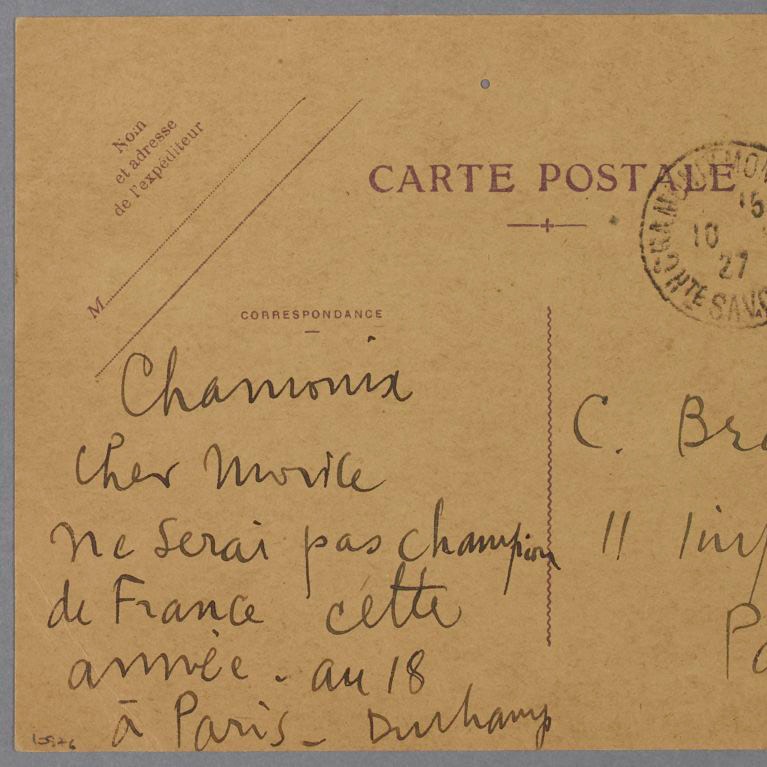 Nom
et adresse
de l'expéditeur
M
CARTE POSTALE
CHAMONIX MON
15
10
27
HTE SAVO
CORRESPONDANCE
Chamonix
Cher Morice
ne serai pas champion
de France cette
année - au 18
à Paris - Duchamp
C. Bra
11 Imp
Pa